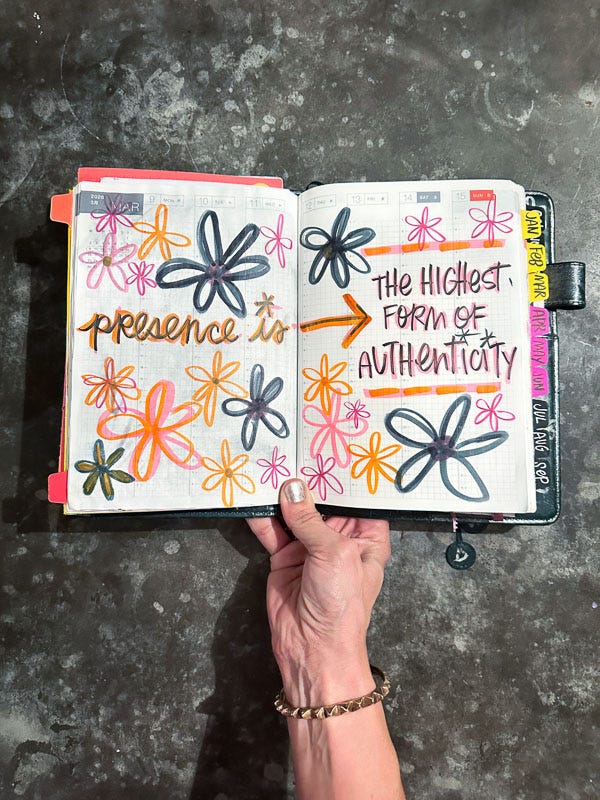 2026
MAR
9 MON
10
11 WED
13 FRI
14 SAT
15 SUN
presence is
THE HIGHEST
FORM OF
AUTHENTICITY
JAN
FEB
MAR
APR
MAY
JUN
JUL
AUG
SEP